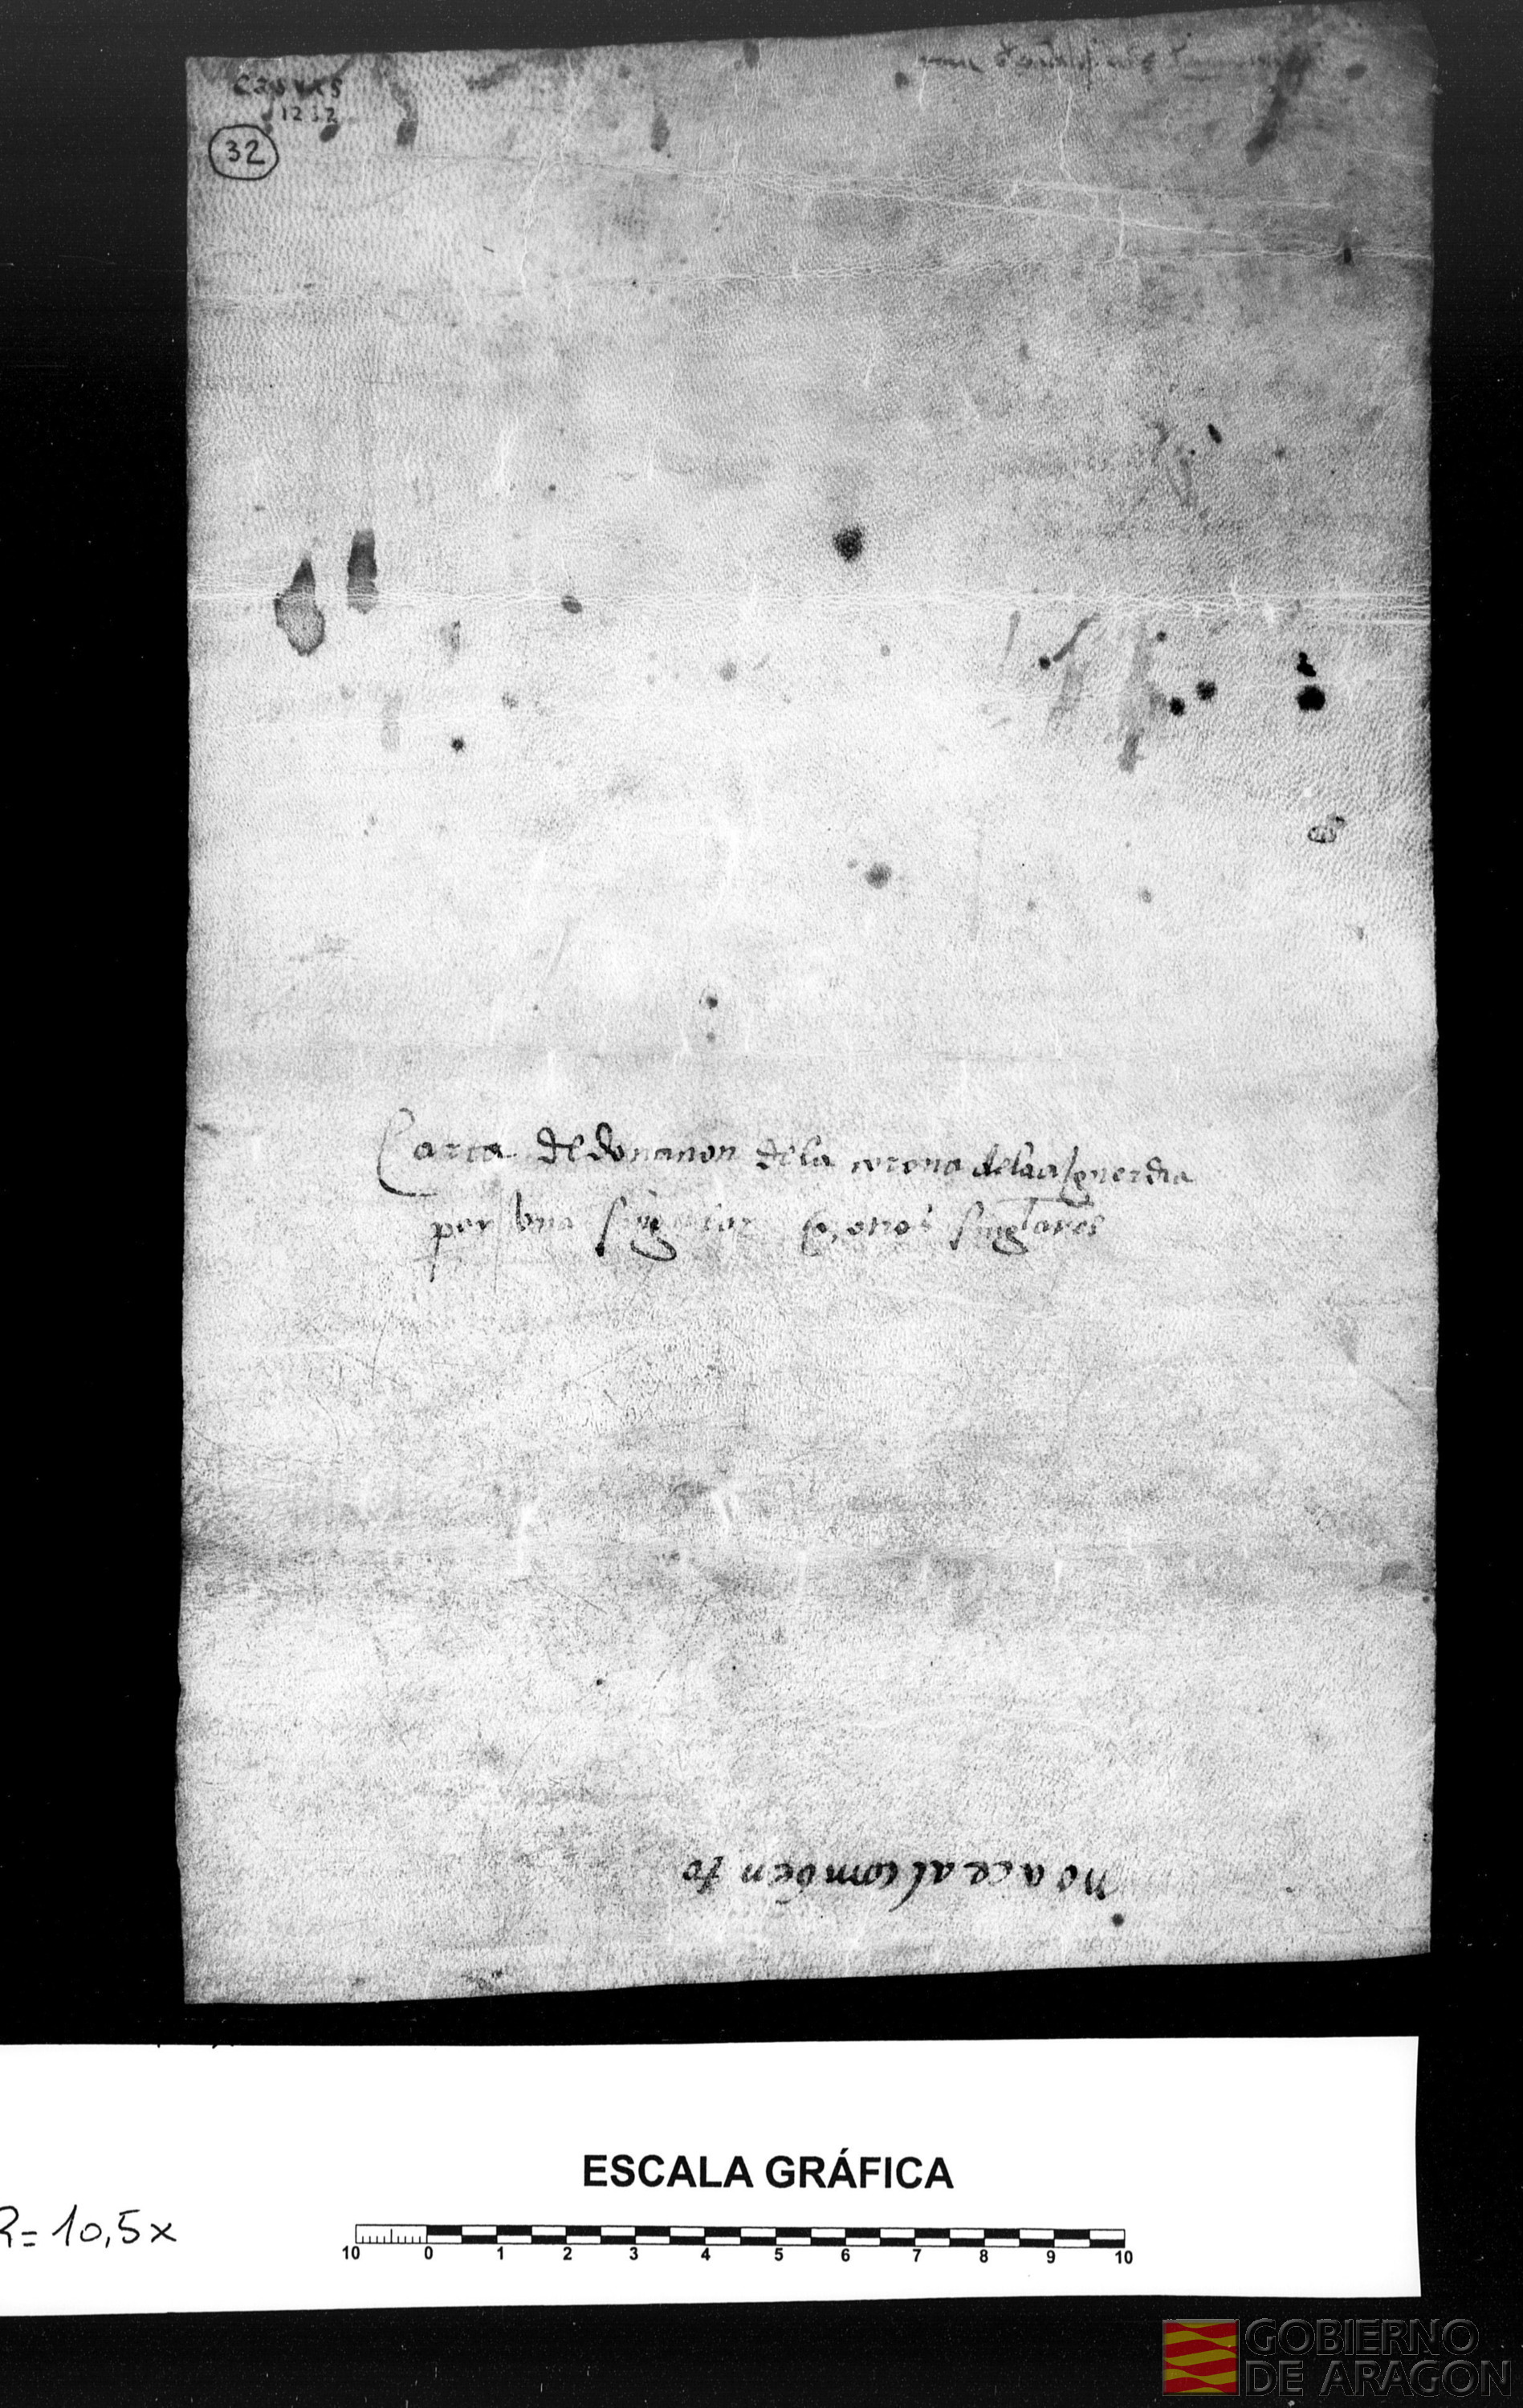 CASVAS
1232
32
Carta de donacion de la corona de la
por una singular & otros singlares
no ace al combento
ESCALA GRÁFICA
R= 10,5x
10 0 1 2 3 4 5 6 7 8 9 10
GOBIERNO
DE ARAGON